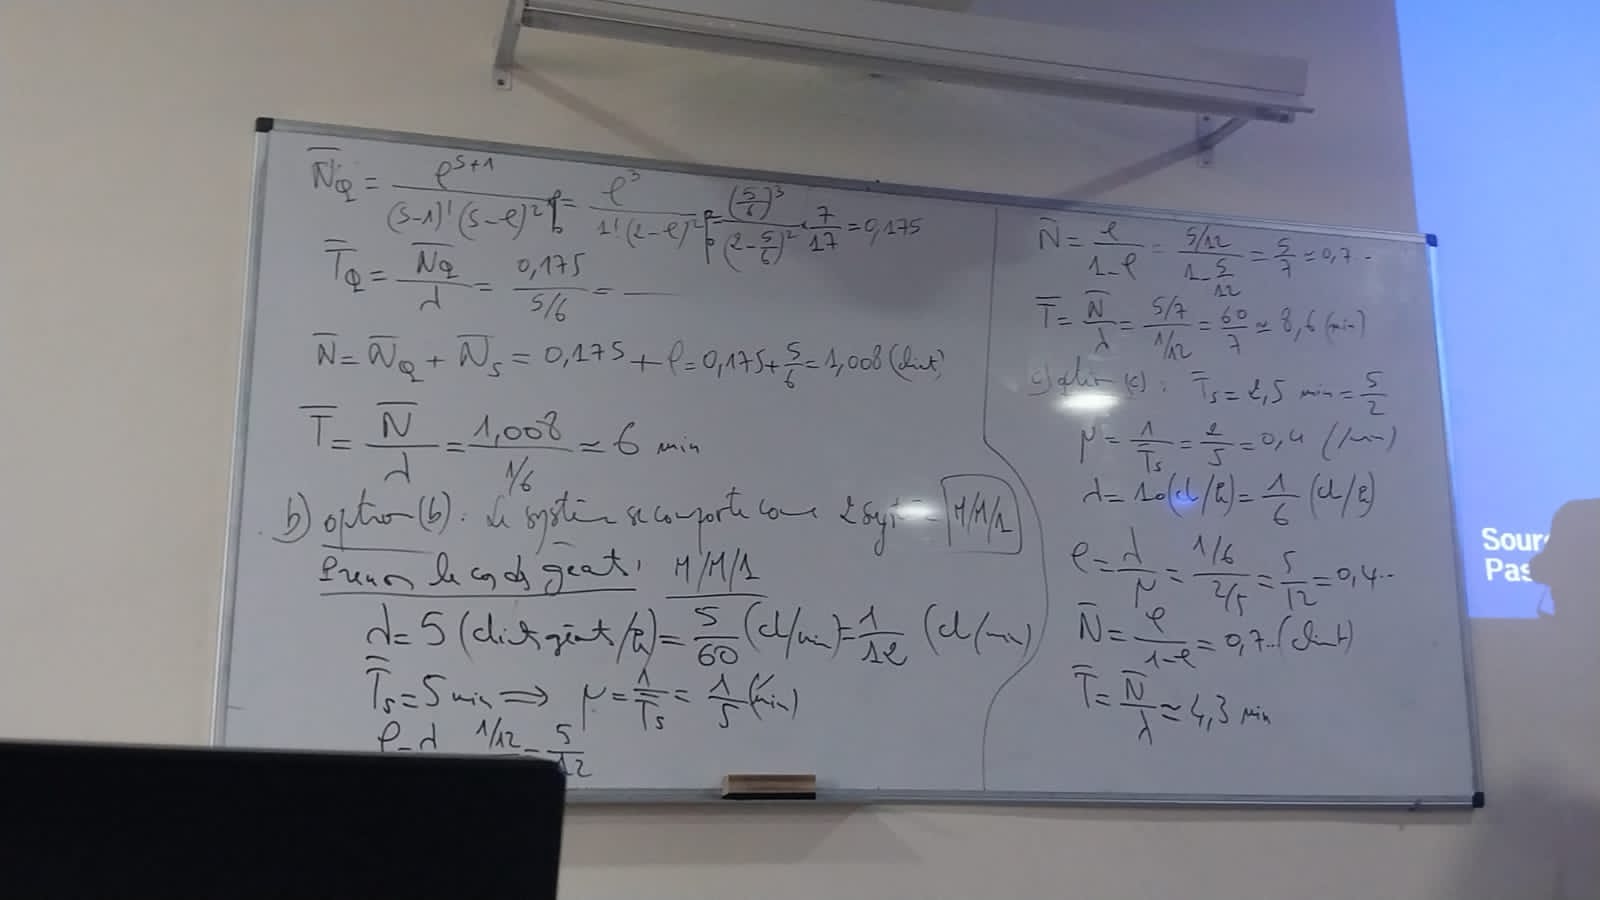 N̄_Q = ρ^{S+1} / (S-1)! (S-ρ)² P₀ = ρ³ / 1! (2-ρ)² P₀ = (5/6)³ / (2-5/6)² × 7/17 = 0,175
T̄_Q = N̄_Q / λ = 0,175 / 5/6 = —
N̄ = N̄_Q + N̄_S = 0,175 + ρ = 0,175 + 5/6 = 1,008 (client)
T̄ = N̄ / λ = 1,008 / 1/6 ≃ 6 min
b) option (b) : Le système se comporte comme 2 syst M/M/1
Prenons le cas des géants : M/M/1
λ = 5 (clients géants/h) = 5/60 (cl/min) = 1/12 (cl/min)
T̄_s = 5 min ⟹ μ = 1/T̄_s = 1/5 (/min)
ρ = λ 1/12 = 5/12
N̄ = ρ / 1-ρ = 5/12 / 1-5/12 = 5/7 ≃ 0,7..
T̄ = N̄ / λ = 5/7 / 1/12 = 60/7 ≃ 8,6 (min)
c) option (c) : T̄_s = 2,5 min = 5/2
μ = 1/T̄_s = 2/5 = 0,4 (/min)
λ = 10 (cl/h) = 1/6 (cl/h)
ρ = λ/μ = 1/6 / 2/5 = 5/12 = 0,4..
N̄ = ρ / 1-ρ = 0,7.. (client)
T̄ = N̄ / λ ≃ 4,3 min
Pas